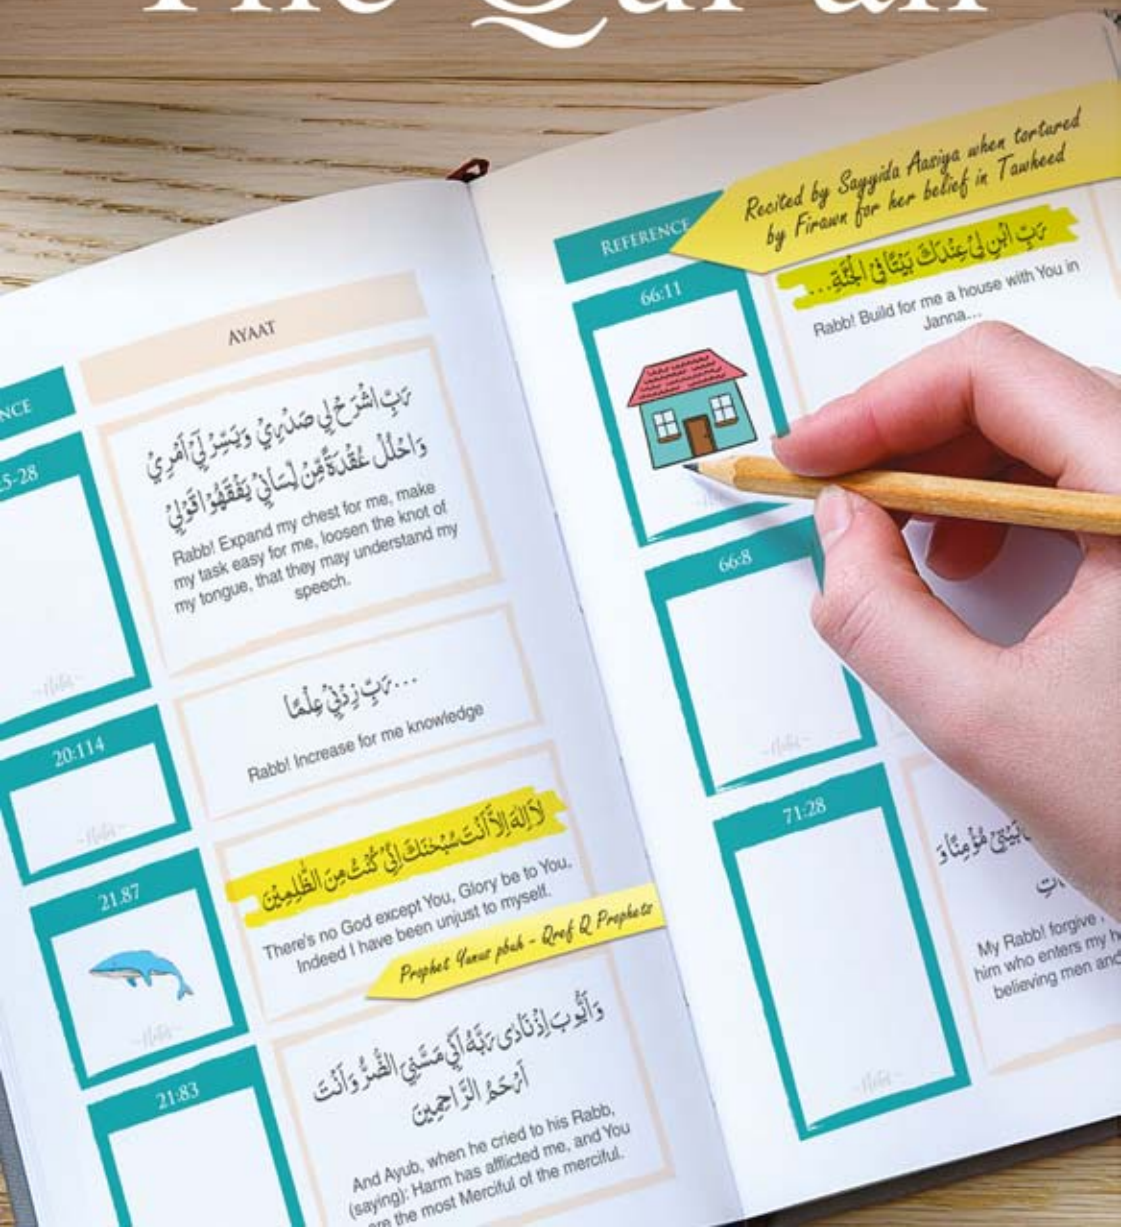 The Qur'an
AYAAT
5-28
رَبِّ اشْرَحْ لِي صَدْرِيْ وَيَسِّرْ لِيْٓ اَمْرِيْ
وَاحْلُلْ عُقْدَةً مِّنْ لِّسَانِيْ يَفْقَهُوْا قَوْلِيْ
Rabb! Expand my chest for me, make
my task easy for me, loosen the knot of
my tongue, that they may understand my
speech.
~Notes~
20:114
...رَبِّ زِدْنِيْ عِلْمًا
Rabb! Increase for me knowledge
~Notes~
21.87
لَآ اِلٰهَ اِلَّآ اَنْتَ سُبْحٰنَكَ اِنِّيْ كُنْتُ مِنَ الظّٰلِمِيْنَ
There's no God except You, Glory be to You,
Indeed I have been unjust to myself.
Prophet Yunus pbuh - Qref Q Prophets
~Notes~
21:83
وَأَيُّوبَ إِذْ نَادَى رَبَّهُ أَنِّي مَسَّنِيَ الضُّرُّ وَأَنْتَ
أَرْحَمُ الرَّاحِمِينَ
And Ayub, when he cried to his Rabb,
(saying): Harm has afflicted me, and You
are the most Merciful of the merciful.
REFERENCE
Recited by Sayyida Aasiya when tortured
by Firawn for her belief in Tawheed
66:11
رَبِّ ابْنِ لِيْ عِنْدَكَ بَيْتًا فِي الْجَنَّةِ...
Rabb! Build for me a house with You in
Janna...
66:8
~Notes~
71:28
بَيْتِيَ مُؤْمِنًا وَ
My Rabb! forgive
him who enters my
believing men and
~Notes~